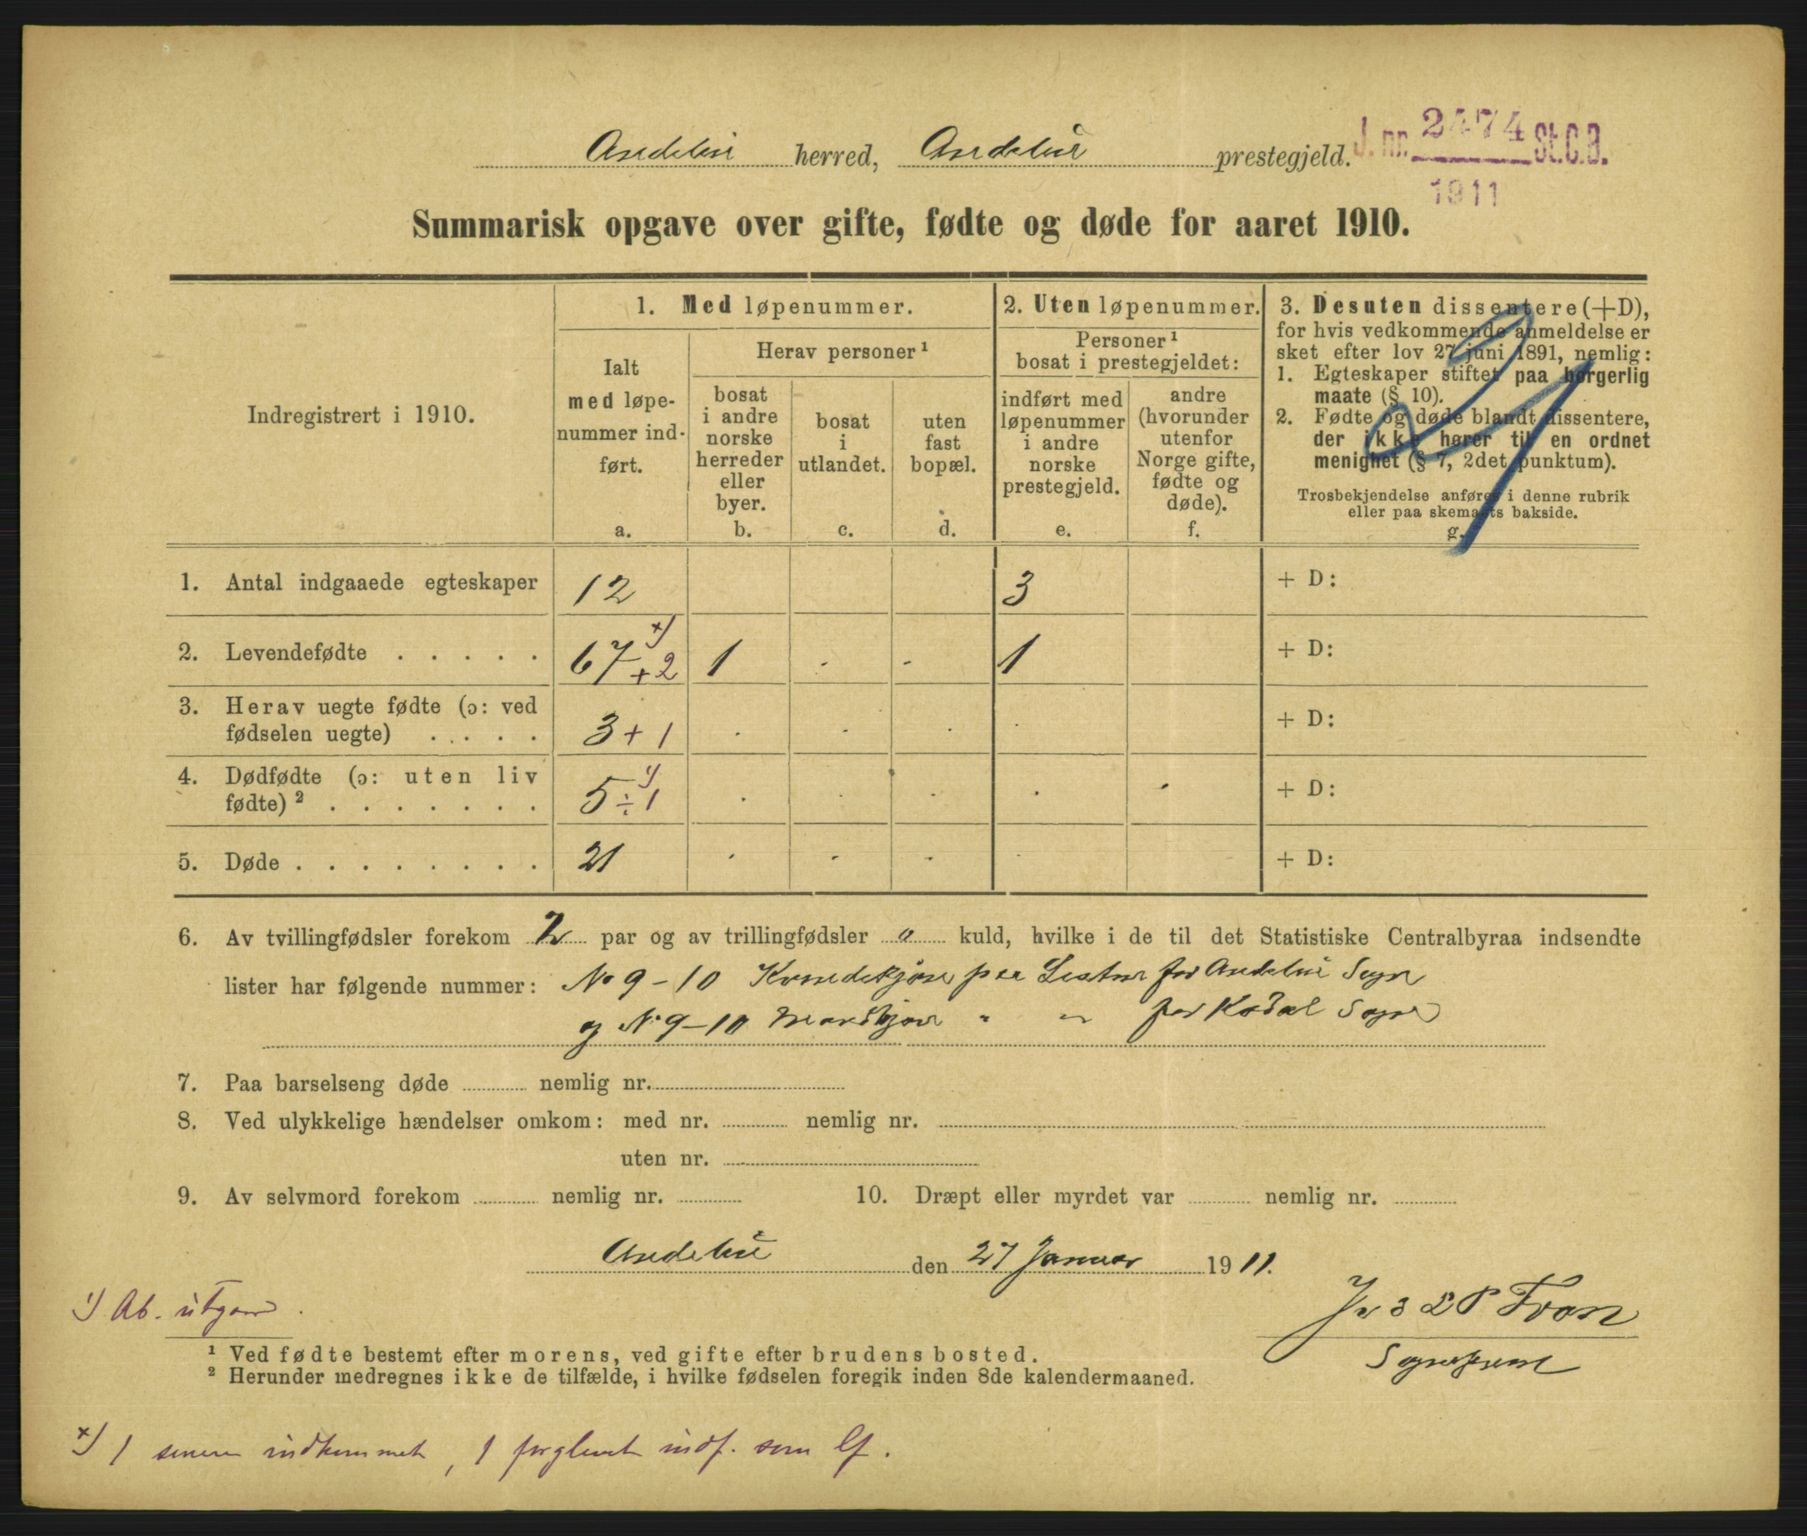 Andebu herred, Andebu prestegjeld.
J. nr. 2474 St.C.B.
1911
Summarisk opgave over gifte, fødte og døde for aaret 1910.
Indregistrert i 1910.
1. Med løpenummer.
Ialt
med løpe-
nummer ind-
ført.
a.
Herav personer ¹
bosat
i andre
norske
herreder
eller
byer.
b.
bosat
i
utlandet.
c.
uten
fast
bopæl.
d.
2. Uten løpenummer.
Personer ¹
bosat i prestegjeldet:
indført med
løpenummer
i andre
norske
prestegjeld.
e.
andre
(hvorunder
utenfor
Norge gifte,
fødte og
døde).
f.
3. Desuten dissentere (+D),
for hvis vedkommende anmeldelse er
sket efter lov 27 juni 1891, nemlig:
1. Egteskaper stiftet paa borgerlig
maate (§ 10).
2. Fødte og døde blandt dissentere,
der ikke hører til en ordnet
menighet (§ 7, 2det punktum).
Trosbekjendelse anføres i denne rubrik
eller paa skemaets bakside.
g.
1. Antal indgaaede egteskaper 12 3 + D:
2. Levendefødte . . . . . 67 + 2 x) 1 . . 1 + D:
3. Herav uegte fødte (ɔ: ved
fødselen uegte) . . . . 3 + 1 . . . . + D:
4. Dødfødte (ɔ: uten liv
fødte) ² . . . . . . . 5 ÷ 1 ¹) . . . . . + D:
5. Døde . . . . . . . . 21 . . . . . + D:
6. Av tvillingfødsler forekom 2 par og av trillingfødsler " kuld, hvilke i de til det Statistiske Centralbyraa indsendte
lister har følgende nummer: No 9-10 Kvindekjøn paa Listen for Andebu Sogn
og No 9-10 Mandkjøn " " for Kodal Sogn
7. Paa barselseng døde nemlig nr.
8. Ved ulykkelige hændelser omkom: med nr. nemlig nr.
uten nr.
9. Av selvmord forekom nemlig nr. 10. Dræpt eller myrdet var nemlig nr.
Andebu den 27 Januar 1911.
Tron
Sogneprest
¹) Ab. utgaar.
¹ Ved fødte bestemt efter morens, ved gifte efter brudens bosted.
² Herunder medregnes ikke de tilfælde, i hvilke fødselen foregik inden 8de kalendermaaned.
x) 1 senere indkommet, 1 forglemt indf. som lf.